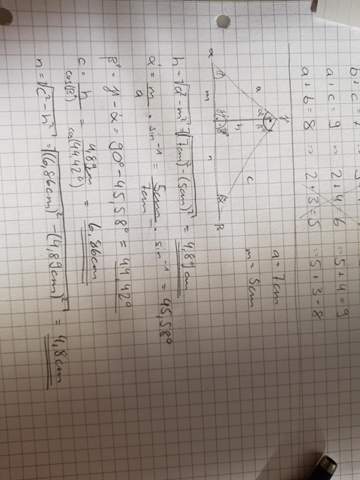 b + c = 7
a + c = 9 => 2 + 4 = 6 5 + 4 = 9
a + b = 8 => 2 + 3 = 5 5 + 3 = 8
a = 7cm
m = 5cm
a
c
m
h
n
α
β
γ
h = √a² - m² = √(7cm)² - (5cm)² = 4,89cm
α' = m/a · sin⁻¹ = 5cm/7cm · sin⁻¹ = 45,58°
β' = γ - α' = 90° - 45,58° = 44,42°
c = h/cos(β') = 4,89cm/cos(44,42°) = 6,86cm
n = √c² - h² = √(6,86cm)² - (4,89cm)² = 4,8cm